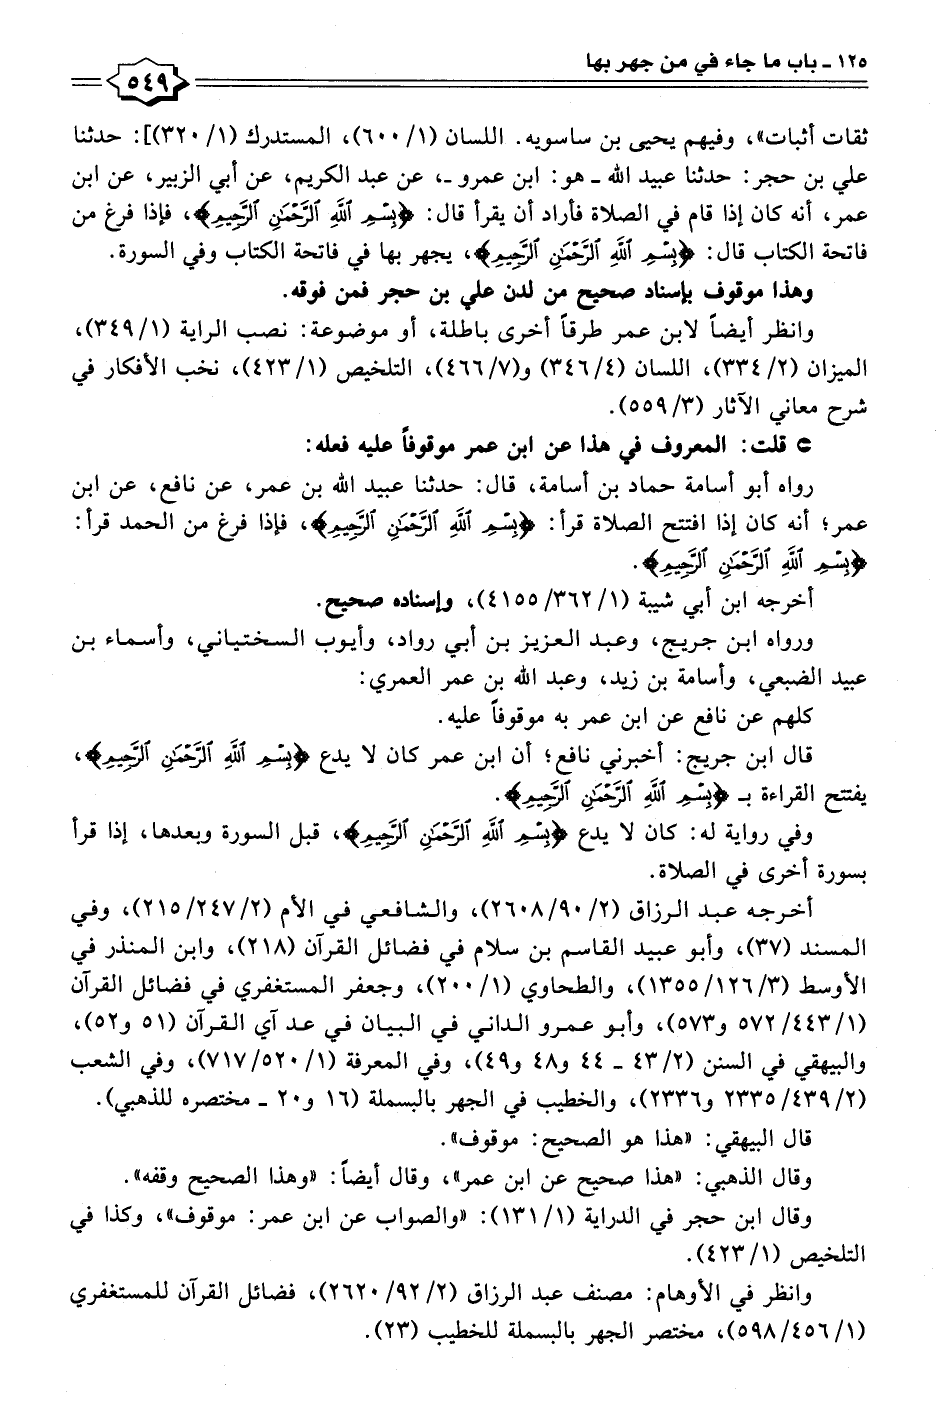 ١٢٥ ـ باب ما جاء في من جهر بها
٥٤٩
ثقات أثبات»، وفيهم يحيى بن ساسويه. اللسان (١/ ٦٠٠)، المستدرك (١/ ٣٢٠)]: حدثنا
علي بن حجر: حدثنا عبيد الله ـ هو: ابن عمرو ـ، عن عبد الكريم، عن أبي الزبير، عن ابن
عمر، أنه كان إذا قام في الصلاة فأراد أن يقرأ قال: ﴿بِسْمِ ٱللَّهِ ٱلرَّحْمَٰنِ ٱلرَّحِيمِ﴾، فإذا فرغ من
فاتحة الكتاب قال: ﴿بِسْمِ ٱللَّهِ ٱلرَّحْمَٰنِ ٱلرَّحِيمِ﴾، يجهر بها في فاتحة الكتاب وفي السورة.
وهذا موقوف بإسناد صحيح من لدن علي بن حجر فمن فوقه.
وانظر أيضاً لابن عمر طرقاً أخرى باطلة، أو موضوعة: نصب الراية (١/ ٣٤٩)،
الميزان (٢/ ٣٣٤)، اللسان (٤/ ٣٤٦) و(٧/ ٤٦٦)، التلخيص (١/ ٤٢٣)، نخب الأفكار في
شرح معاني الآثار (٣/ ٥٥٩).
⊂ قلت: المعروف في هذا عن ابن عمر موقوفاً عليه فعله:
رواه أبو أسامة حماد بن أسامة، قال: حدثنا عبيد الله بن عمر، عن نافع، عن ابن
عمر؛ أنه كان إذا افتتح الصلاة قرأ: ﴿بِسْمِ ٱللَّهِ ٱلرَّحْمَٰنِ ٱلرَّحِيمِ﴾، فإذا فرغ من الحمد قرأ:
﴿بِسْمِ ٱللَّهِ ٱلرَّحْمَٰنِ ٱلرَّحِيمِ﴾.
أخرجه ابن أبي شيبة (١/ ٣٦٢/ ٤١٥٥)، وإسناده صحيح.
ورواه ابن جريج، وعبد العزيز بن أبي رواد، وأيوب السختياني، وأسماء بن
عبيد الضبعي، وأسامة بن زيد، وعبد الله بن عمر العمري:
كلهم عن نافع عن ابن عمر به موقوفاً عليه.
قال ابن جريج: أخبرني نافع؛ أن ابن عمر كان لا يدع ﴿بِسْمِ ٱللَّهِ ٱلرَّحْمَٰنِ ٱلرَّحِيمِ﴾،
يفتتح القراءة بـ ﴿بِسْمِ ٱللَّهِ ٱلرَّحْمَٰنِ ٱلرَّحِيمِ﴾.
وفي رواية له: كان لا يدع ﴿بِسْمِ ٱللَّهِ ٱلرَّحْمَٰنِ ٱلرَّحِيمِ﴾، قبل السورة وبعدها، إذا قرأ
بسورة أخرى في الصلاة.
أخرجه عبد الرزاق (٢/ ٩٠/ ٢٦٠٨)، والشافعي في الأم (٢/ ٢٤٧/ ٢١٥)، وفي
المسند (٣٧)، وأبو عبيد القاسم بن سلام في فضائل القرآن (٢١٨)، وابن المنذر في
الأوسط (٣/ ١٢٦/ ١٣٥٥)، والطحاوي (١/ ٢٠٠)، وجعفر المستغفري في فضائل القرآن
(١/ ٤٤٣/ ٥٧٢ و٥٧٣)، وأبو عمرو الداني في البيان في عد آي القرآن (٥١ و٥٢)،
والبيهقي في السنن (٢/ ٤٣ ـ ٤٤ و٤٨ و٤٩)، وفي المعرفة (١/ ٥٢٠/ ٧١٧)، وفي الشعب
(٢/ ٤٣٩/ ٢٣٣٥ و٢٣٣٦)، والخطيب في الجهر بالبسملة (١٦ و٢٠ ـ مختصره للذهبي).
قال البيهقي: «هذا هو الصحيح: موقوف».
وقال الذهبي: «هذا صحيح عن ابن عمر»، وقال أيضاً: «وهذا الصحيح وقفه».
وقال ابن حجر في الدراية (١/ ١٣١): «والصواب عن ابن عمر: موقوف»، وكذا في
التلخيص (١/ ٤٢٣).
وانظر في الأوهام: مصنف عبد الرزاق (٢/ ٩٢/ ٢٦٢٠)، فضائل القرآن للمستغفري
(١/ ٤٥٦/ ٥٩٨)، مختصر الجهر بالبسملة للخطيب (٢٣).